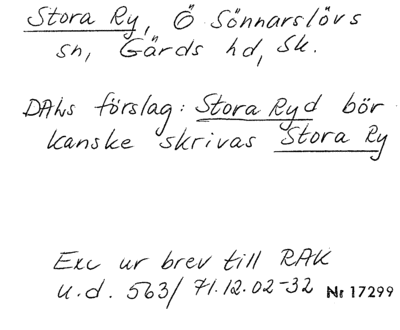 Stora Ry, Ö Sönnarslövs
sn, Gärds hd, Sk.
DAHs förslag: Stora Ryd bör
kanske skrivas Stora Ry
Exc ur brev till RAK
u.d. 563/71.12.02-32 Nr 17299